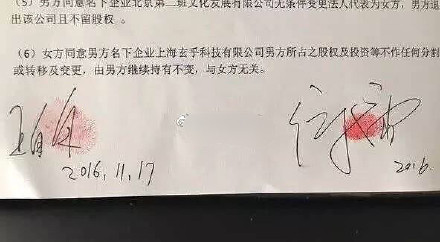 (5) 男方同意名下企业北京第二班文化发展有限公司无条件变更法人代表为女方,男方退
出该公司且不留股权。
(6) 女方同意男方名下企业上海玄乎科技有限公司男方所占之股权及投资等不作任何分割
或转移及变更,由男方继续持有不变,与女方无关。
2016.11.17
2016.